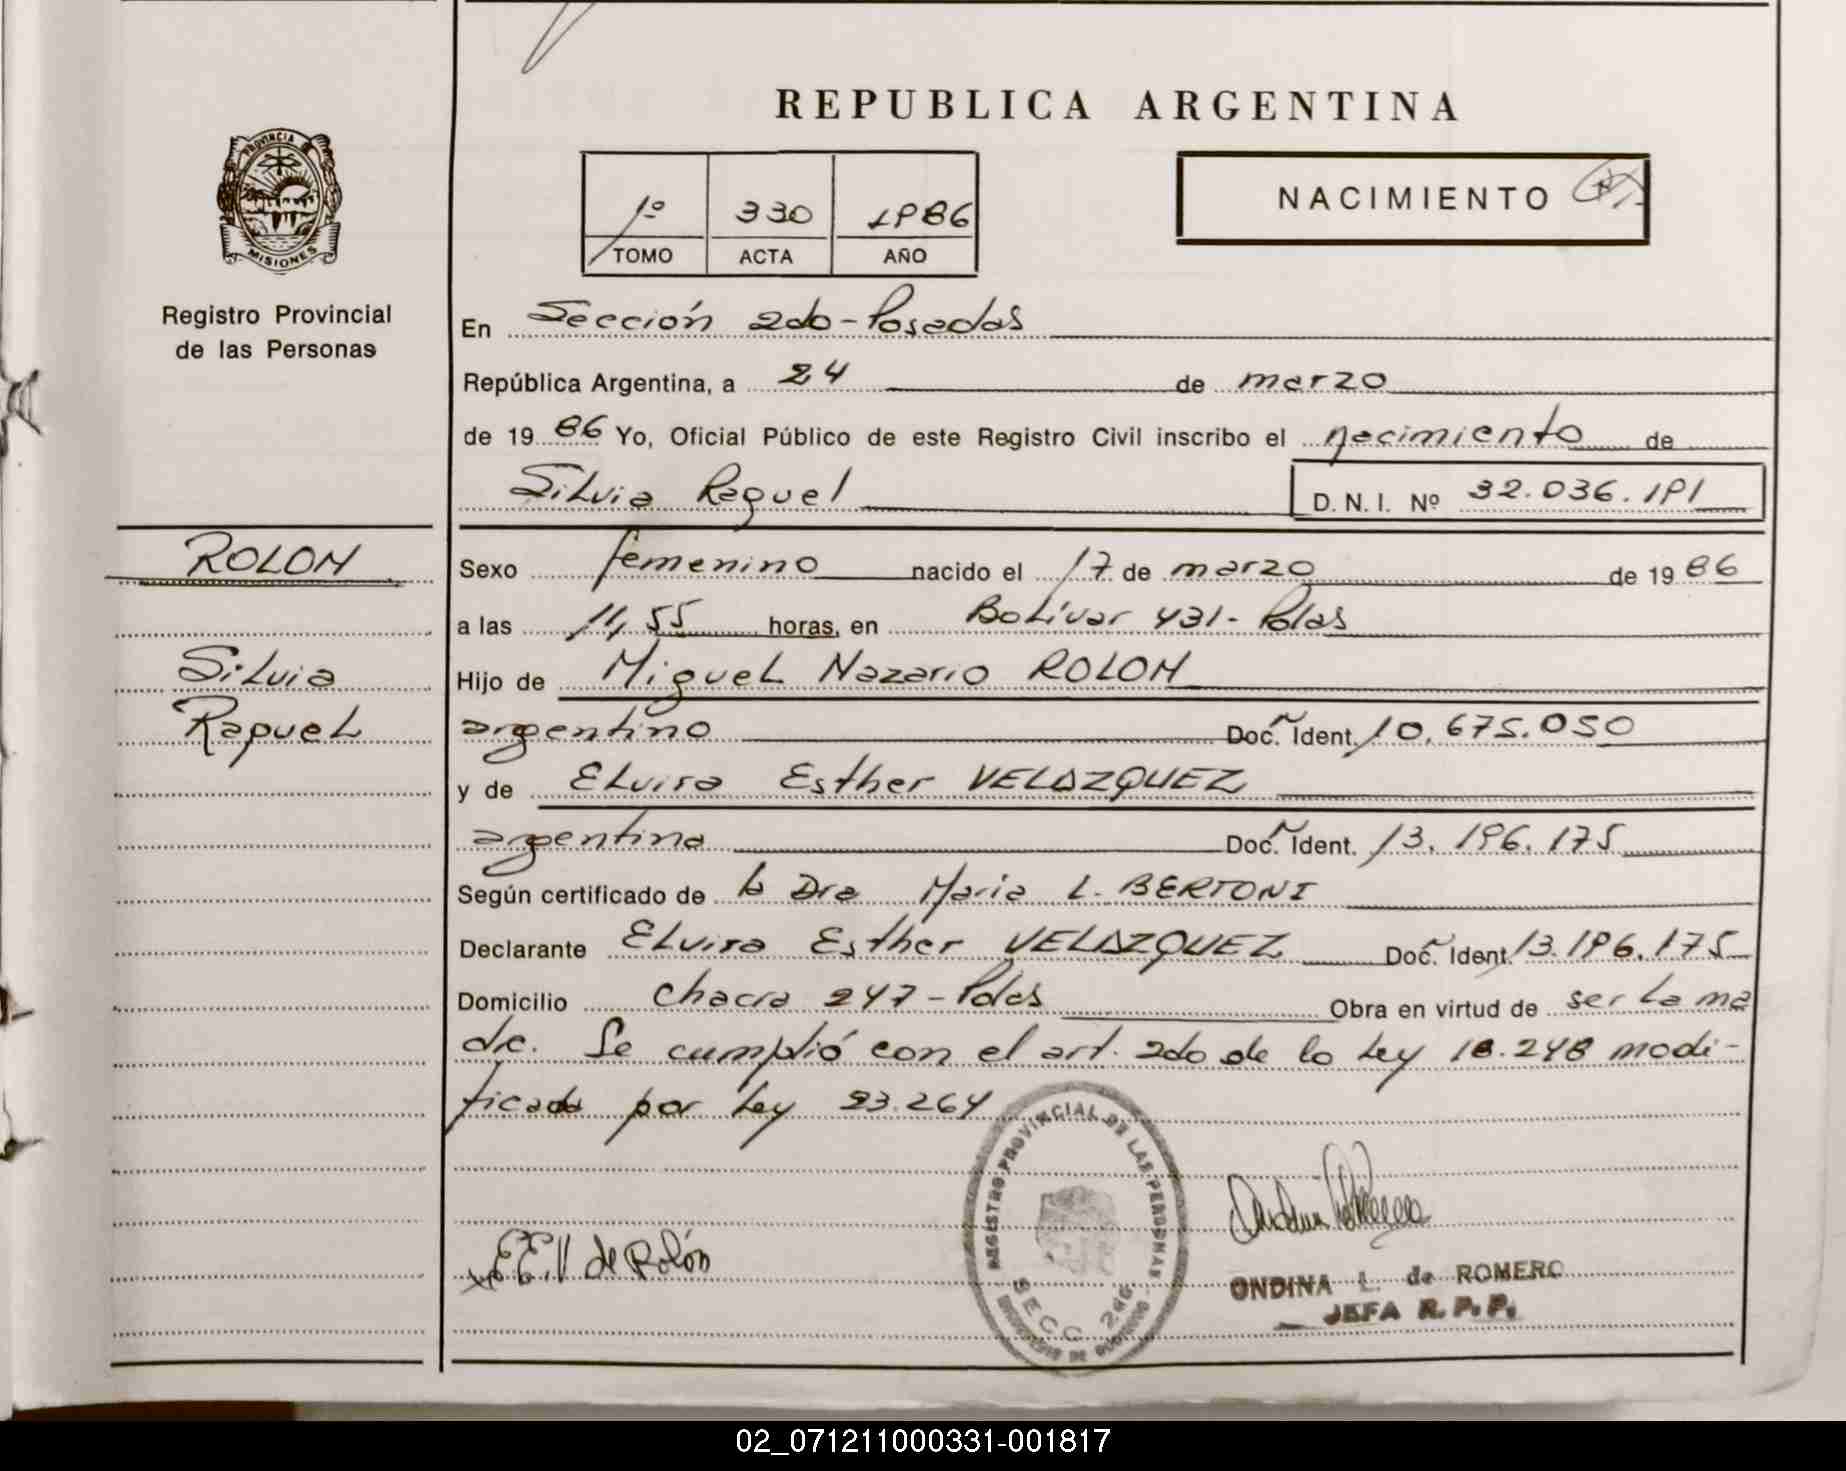 REPUBLICA ARGENTINA
PROVINCIA
MISIONES
Registro Provincial
de las Personas
1º 330 1986
TOMO ACTA AÑO
NACIMIENTO
En Sección 2do-Posadas
República Argentina, a 24 de marzo
de 1986 Yo, Oficial Público de este Registro Civil inscribo el nacimiento de
Silvia Raquel D.N.I. Nº 32.036.191
ROLON
Silvia
Raquel
Sexo femenino nacido el 17 de marzo de 1986
a las 11,55 horas, en Bolívar 431- Pdas
Hijo de Miguel Nazario ROLON
argentino Doc. Ident. 10.675.050
y de Elvira Esther VELAZQUEZ
argentina Doc. Ident. 13.196.175
Según certificado de la Dra Maria L. BERTONI
Declarante Elvira Esther VELAZQUEZ Doc. Ident. 13.196.175
Domicilio Chacra 247-Pdas Obra en virtud de ser la ma
dre. Se cumplió con el art. 2do de la Ley 18.248 modi-
ficada por Ley 23.264
REGISTRO PROVINCIAL DE LAS PERSONAS
SECC 2da
E.E.V de Rolón
ONDINA L. de ROMERO
JEFA R.P.P.
02_071211000331-001817